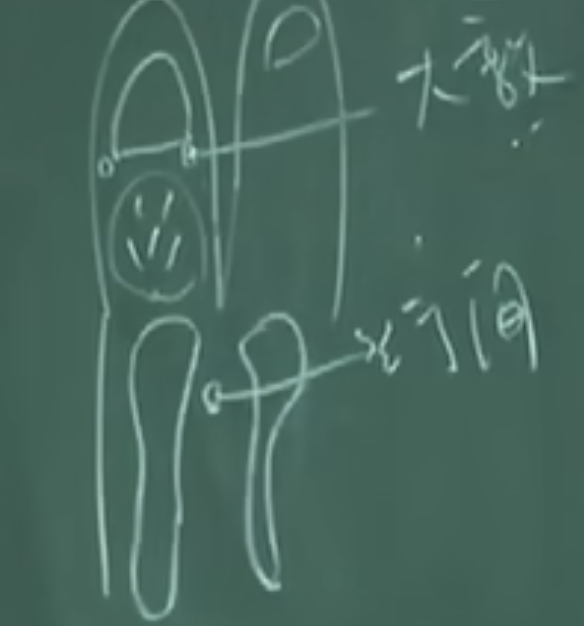 大敦
行间